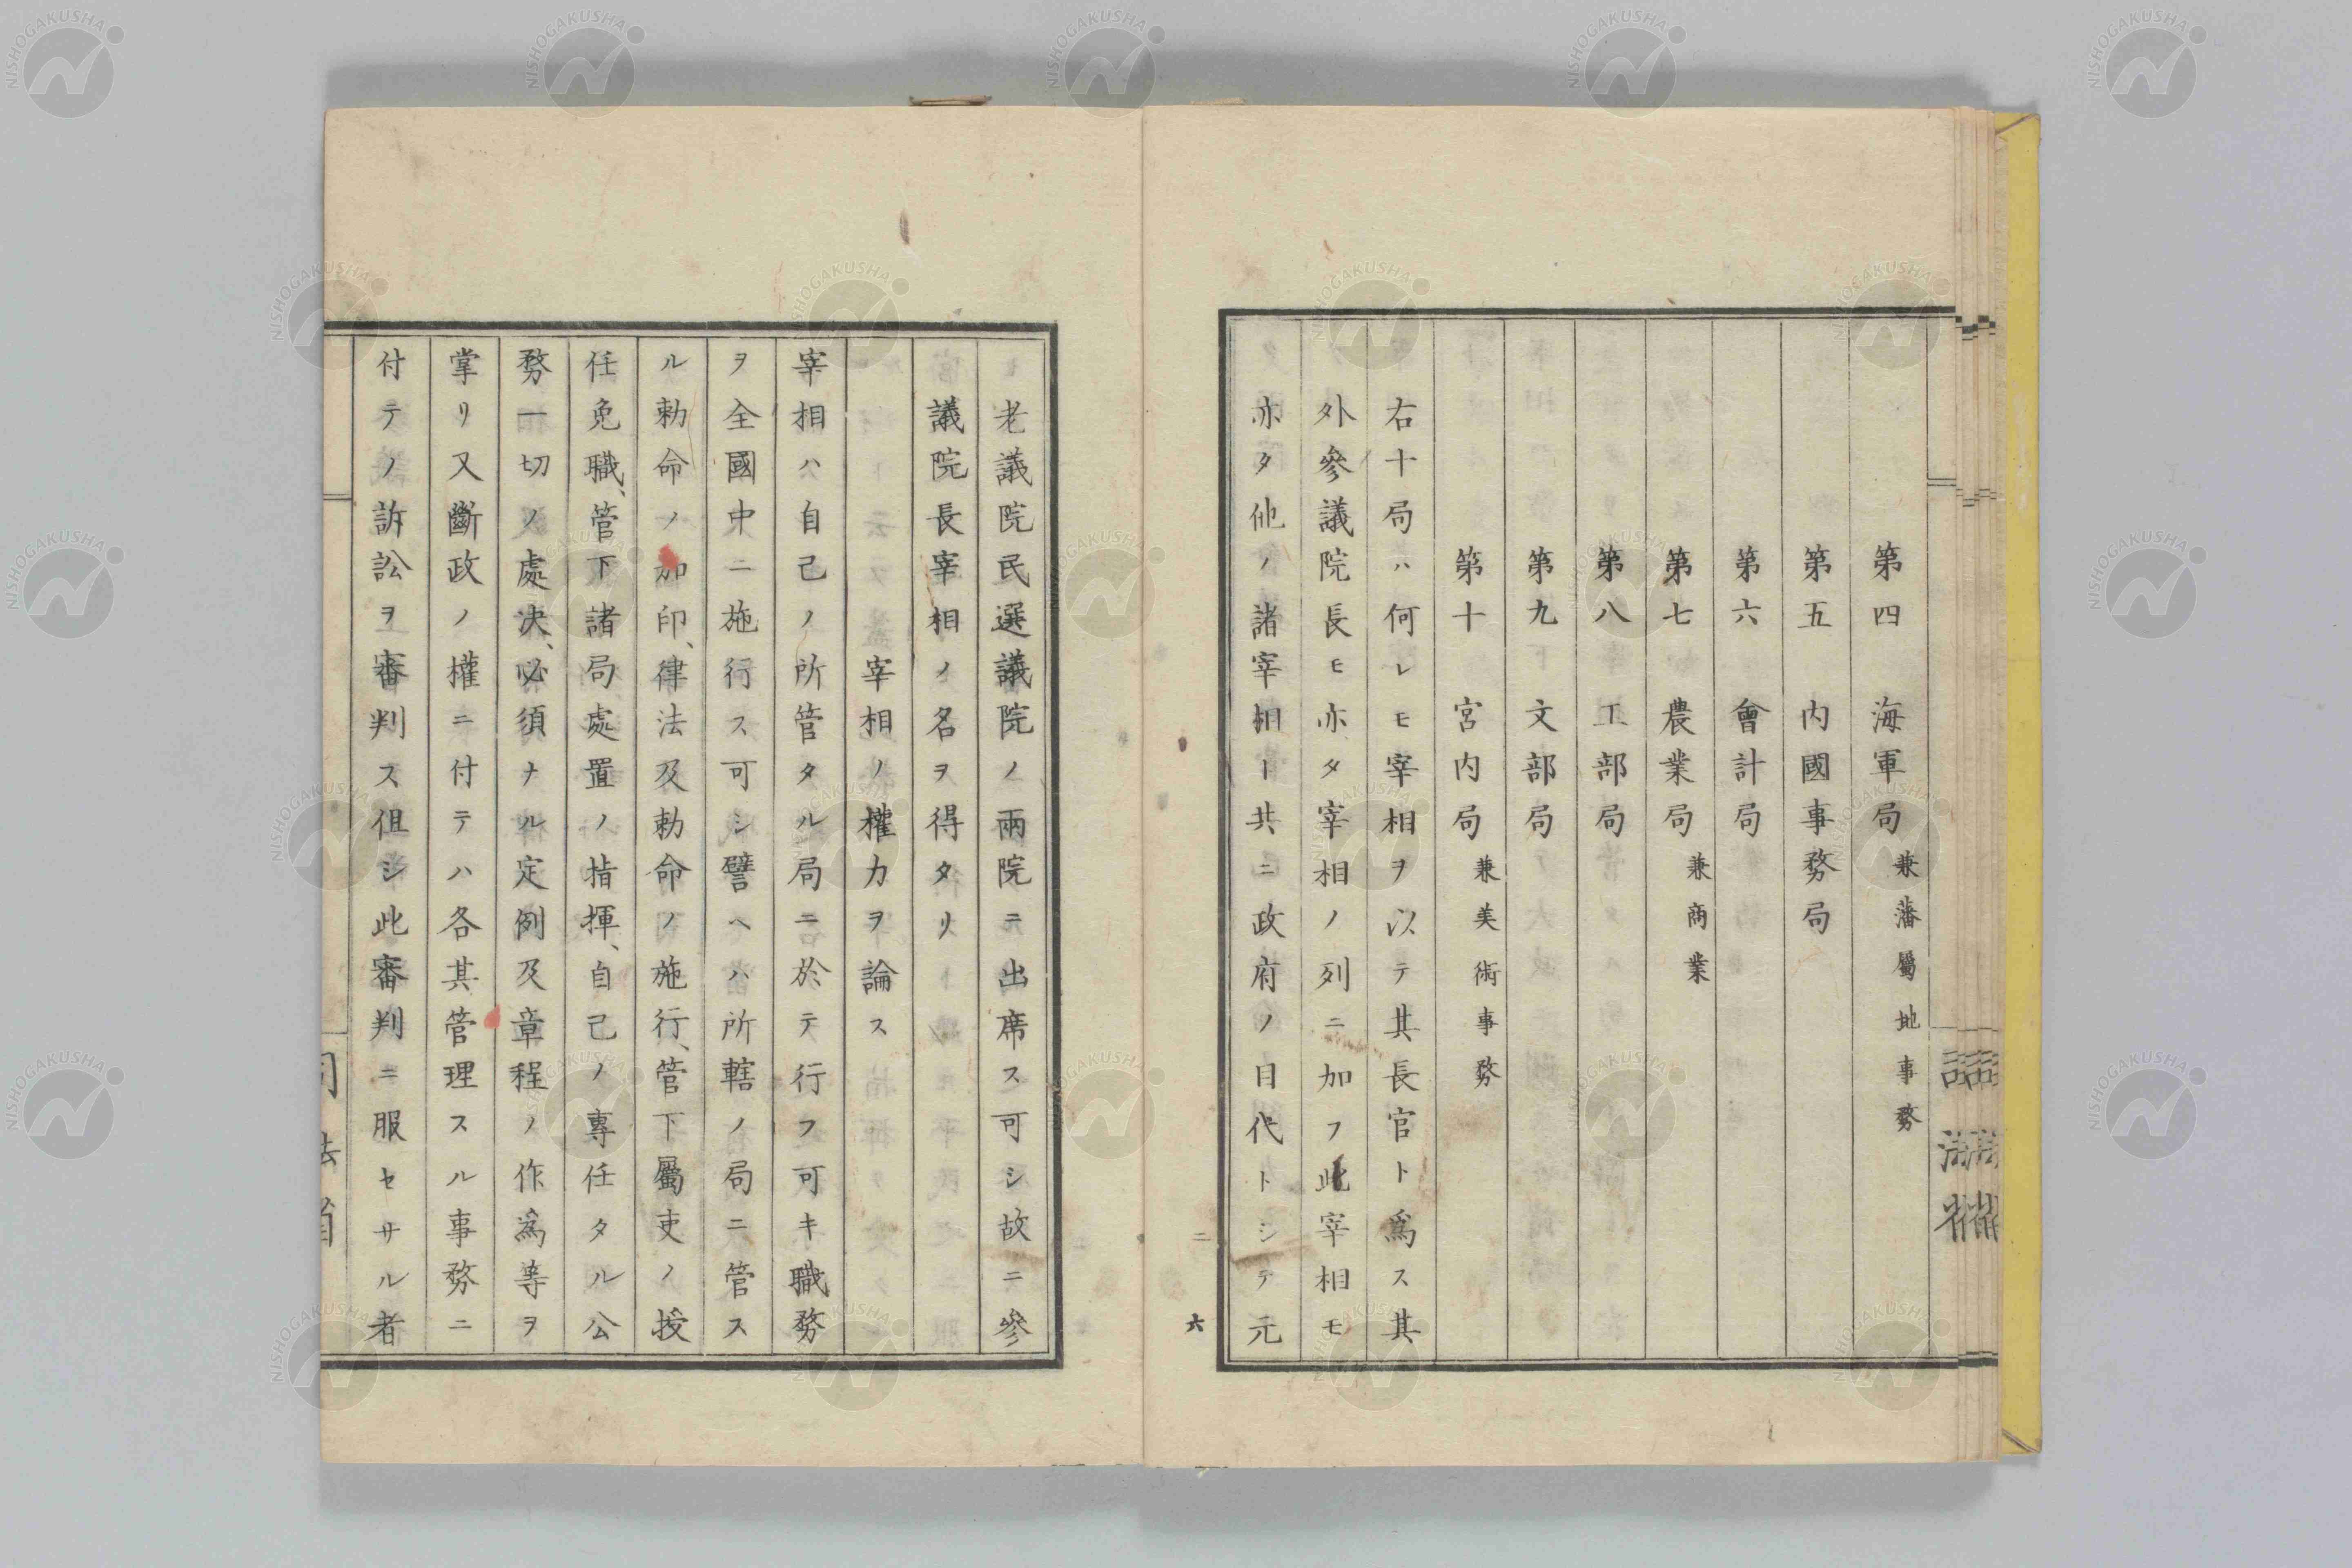 第四　海軍局 兼藩屬地事務
第五　内國事務局
第六　會計局
第七　農業局 兼商業
第八　工部局
第九　文部局
第十　宮内局 兼美術事務
右十局ハ何レモ宰相ヲ以テ其長官ト爲ス其
外參議院長モ亦タ宰相ノ列ニ加フ此宰相モ
亦タ他ノ諸宰相ト共ニ政府ノ目代トシテ元
六
老議院民選議院ノ兩院ニ出席ス可シ故ニ參
議院長宰相ノ名ヲ得タリ
宰相ノ權力ヲ論ス
宰相ハ自己ノ所管タル局ニ於テ行フ可キ職務
ヲ全國中ニ施行ス可シ譬ヘハ所轄ノ局ニ管ス
ル勅命ノ加印、律法及勅命ノ施行、管下屬吏ノ授
任免職、管下諸局處置ノ指揮、自己ノ專任タル公
務一切ノ處決、必須ナル定例及章程ノ作爲等ヲ
掌リ又斷政ノ權ニ付テハ各其管理スル事務ニ
付テノ訴訟ヲ審判ス但シ此審判ニ服セサル者
司法省
NISHOGAKUSHA